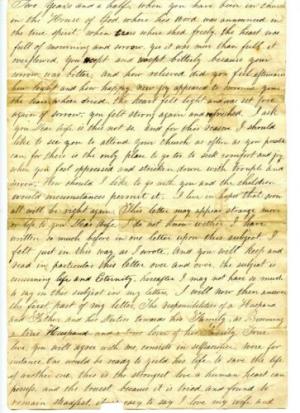 Two Years and a half, when you have been in
in the House of God, where his Word was announced in
the true spirit, when tears where shed freely, the heart was
full of mourning and sorrow, yes it was more than full it
overflowed, You wept and wept bitterly because your
sorrow was bitter, and how relieved did you feel afterwards
how and how happy, new joy appeared to
the tears where dried, the heart felt light and was set free
again of sorrow, you felt strong again and refreshed. I ask
you Dear Wife, is this not so, and for this reason I should
like to see you to attend your Church as often as you possible
can for there is the only place to go to to seek comfort and joy
when you feel oppressed and stricken down with trouble and
sorrow. How should I like to go with you and the children
would circumstances permit it. I live in hopes that soon
all will be right again. This letter may appear strange more
or less to you Dear Wife. I do not know wether I have
written so much before in one letter upon this subject, I
felt just in this way as I wrote. And you will keep and
read in particular this letter over and over, the subject is
concerning life and Eternity, hereafter I may not have so much
to say on this subject in my letters, I will now then answer
the first part of my letter, The responsibilities of a Husband
and Father, and his Duties towards his Family, as Becoming
a true Husband and a true lover of his Family. True
love, you will agree with me, consists in selfsacrifice, were for
instance One would be ready to yield his life, to save the life
of another one, this is the strongest love a human heart can
possess, and the truest because it is tried and found to
remain steadfast, it is easy to say I love my wife and